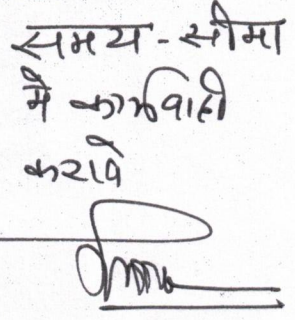 समय-सीमा
मे कार्यवाही
करावे